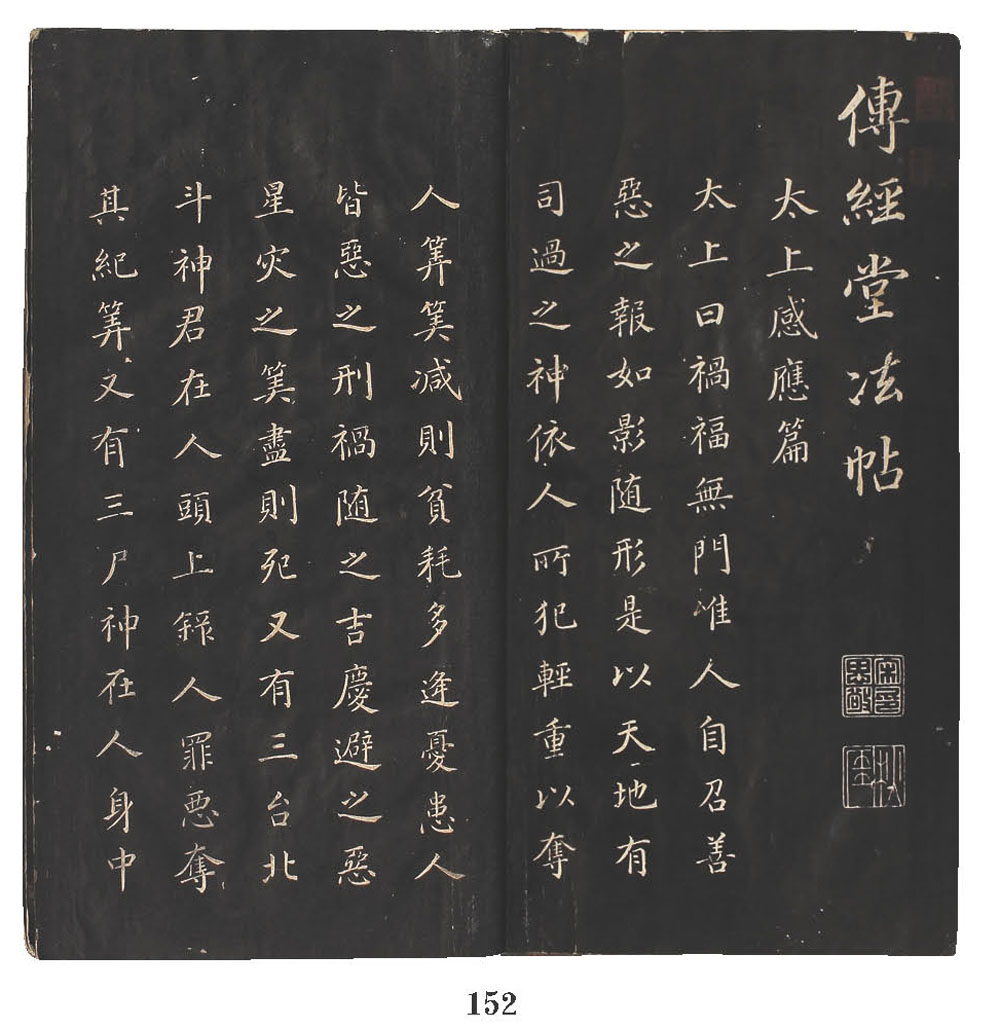 傳經堂法帖
太上感應篇
太上曰禍福無門惟人自召善
惡之報如影随形是以天地有
司過之神依人所犯輕重以奪
人筭筭减則貧耗多逢憂患人
皆惡之刑禍随之吉慶避之惡
星灾之筭盡則死又有三台北
斗神君在人頭上錄人罪惡奪
其紀筭又有三尸神在人身中
152